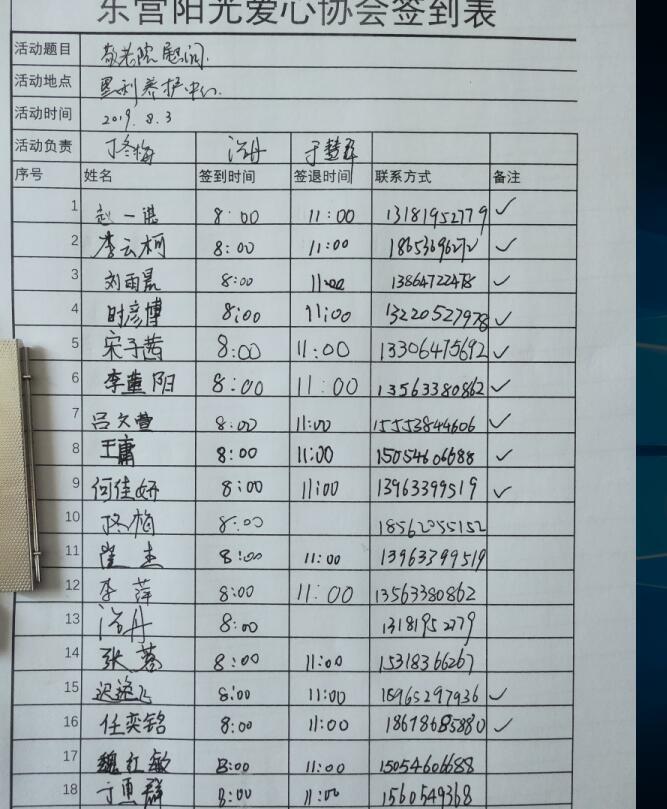 东营阳光爱心协会签到表
活动题目 敬老院慰问.
活动地点 垦利养护中心.
活动时间 2019.8.3
活动负责
序号 姓名 签到时间 签退时间 联系方式 备注
1 赵一 8:00 11:00 13181952779 ✓
2 李云柯 8:00 11:00 18653696272 ✓
3 刘雨晨 8:00 11:00 13864722478 ✓
4 时彦博 8:00 11:00 13220527978 ✓
5 宋子茜 8:00 11:00 13306475692 ✓
6 李董阳 8:00 11:00 13563380862 ✓
7 吕文萱 8:00 11:00 15553844606 ✓
8 王庸 8:00 11:00 15054606688 ✓
9 何佳妍 8:00 11:00 13963399519 ✓
10 8:00 18562055152
11 崔杰 8:00 11:00 13963399519
12 李萍 8:00 11:00 13563380862
13 8:00 13181952779
14 张蓉 8:00 11:00 15318366267
15 8:00 11:00 18965297936 ✓
16 任奕铭 8:00 11:00 18678685880 ✓
17 魏红敏 8:00 11:00 15054606688
18 8:00 11:00 1560549368